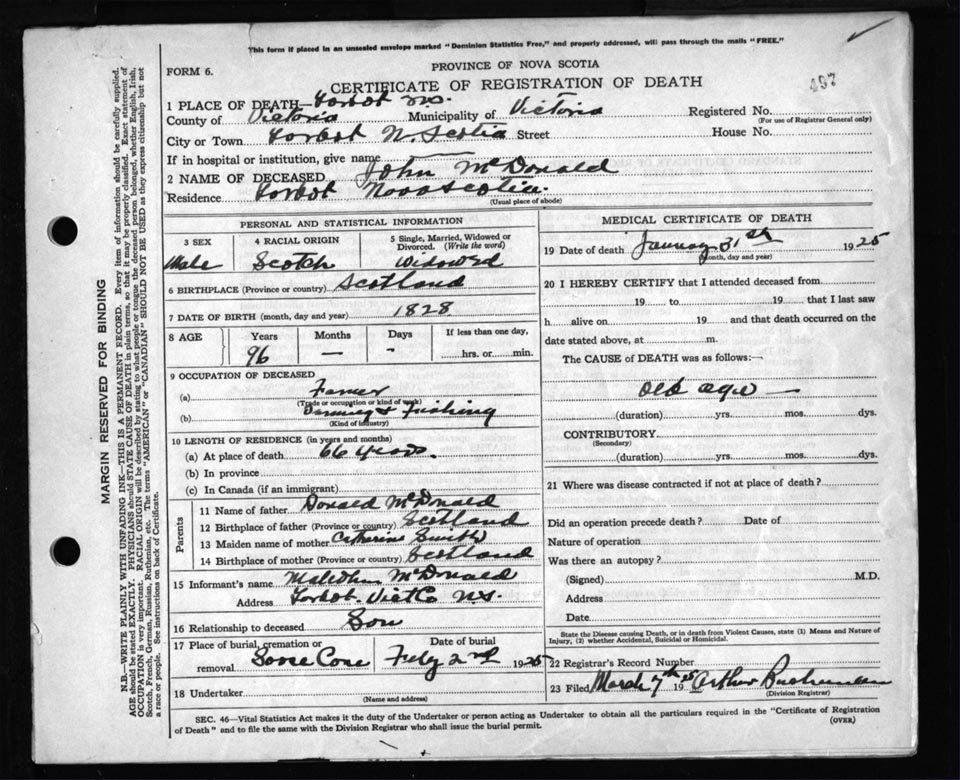 This form if placed in an unsealed envelope marked "Dominion Statistics Free," and properly addressed, will pass through the mails "FREE."
PROVINCE OF NOVA SCOTIA
FORM 6.
CERTIFICATE OF REGISTRATION OF DEATH
497
1 PLACE OF DEATH— N.S.
County of Victoria Municipality of Victoria Registered No.
(For use of Registrar General only)
City or Town N. Scotia Street House No.
If in hospital or institution, give name
2 NAME OF DECEASED John McDonald
Residence Nova Scotia.
(Usual place of abode)
PERSONAL AND STATISTICAL INFORMATION
3 SEX 4 RACIAL ORIGIN 5 Single, Married, Widowed or Divorced. (Write the word)
Male Scotch Widowed
6 BIRTHPLACE (Province or country) Scotland
7 DATE OF BIRTH (month, day and year) 1828
8 AGE Years Months Days If less than one day,
96 — - hrs. or min.
9 OCCUPATION OF DECEASED
(a) Farmer
(Trade or occupation or kind of work)
(b) Farming & Fishing
(Kind of industry)
10 LENGTH OF RESIDENCE (in years and months)
(a) At place of death 66 years.
(b) In province
(c) In Canada (if an immigrant)
Parents
11 Name of father Donald McDonald
12 Birthplace of father (Province or country) Scotland
13 Maiden name of mother Catherine Smith
14 Birthplace of mother (Province or country) Scotland
15 Informant's name McDonald
Address Vict Co N.S.
16 Relationship to deceased Son
17 Place of burial, cremation or removal Date of burial
Goose Cove Feby 2nd 1925
18 Undertaker
(Name and address)
MEDICAL CERTIFICATE OF DEATH
19 Date of death January 31st 1925
(Month, day and year)
20 I HEREBY CERTIFY that I attended deceased from
19 to 19 that I last saw
h alive on 19 and that death occurred on the
date stated above, at m.
The CAUSE of DEATH was as follows:—
Old age —
(duration) yrs. mos. dys.
CONTRIBUTORY
(Secondary)
(duration) yrs. mos. dys.
21 Where was disease contracted if not at place of death?
Did an operation precede death? Date of
Nature of operation
Was there an autopsy?
(Signed) M.D.
Address
Date
State the Disease causing Death, or in death from Violent Causes, state (1) Means and Nature of
Injury, (2) whether Accidental, Suicidal or Homicidal.
22 Registrar's Record Number
23 Filed March 7th 1925 Arthur Buchanan
(Division Registrar)
SEC. 46—Vital Statistics Act makes it the duty of the Undertaker or person acting as Undertaker to obtain all the particulars required in the "Certificate of Registration
of Death" and to file the same with the Division Registrar who shall issue the burial permit. (OVER)
MARGIN RESERVED FOR BINDING
N.B.—WRITE PLAINLY WITH UNFADING INK—THIS IS A PERMANENT RECORD. Every item of information should be carefully supplied.
AGE should be stated EXACTLY. PHYSICIANS should STATE CAUSE OF DEATH in plain terms, so that it may be properly classified. Exact statement of
OCCUPATION is very important. RACIAL ORIGIN will be described by stating to what people or tongue the deceased person belonged, whether English, Irish,
Scotch, French, German, Russian, Ruthenian, etc. The terms "AMERICAN" or "CANADIAN" SHOULD NOT BE USED as they express citizenship but not
a race or people. See instructions on back of Certificate.